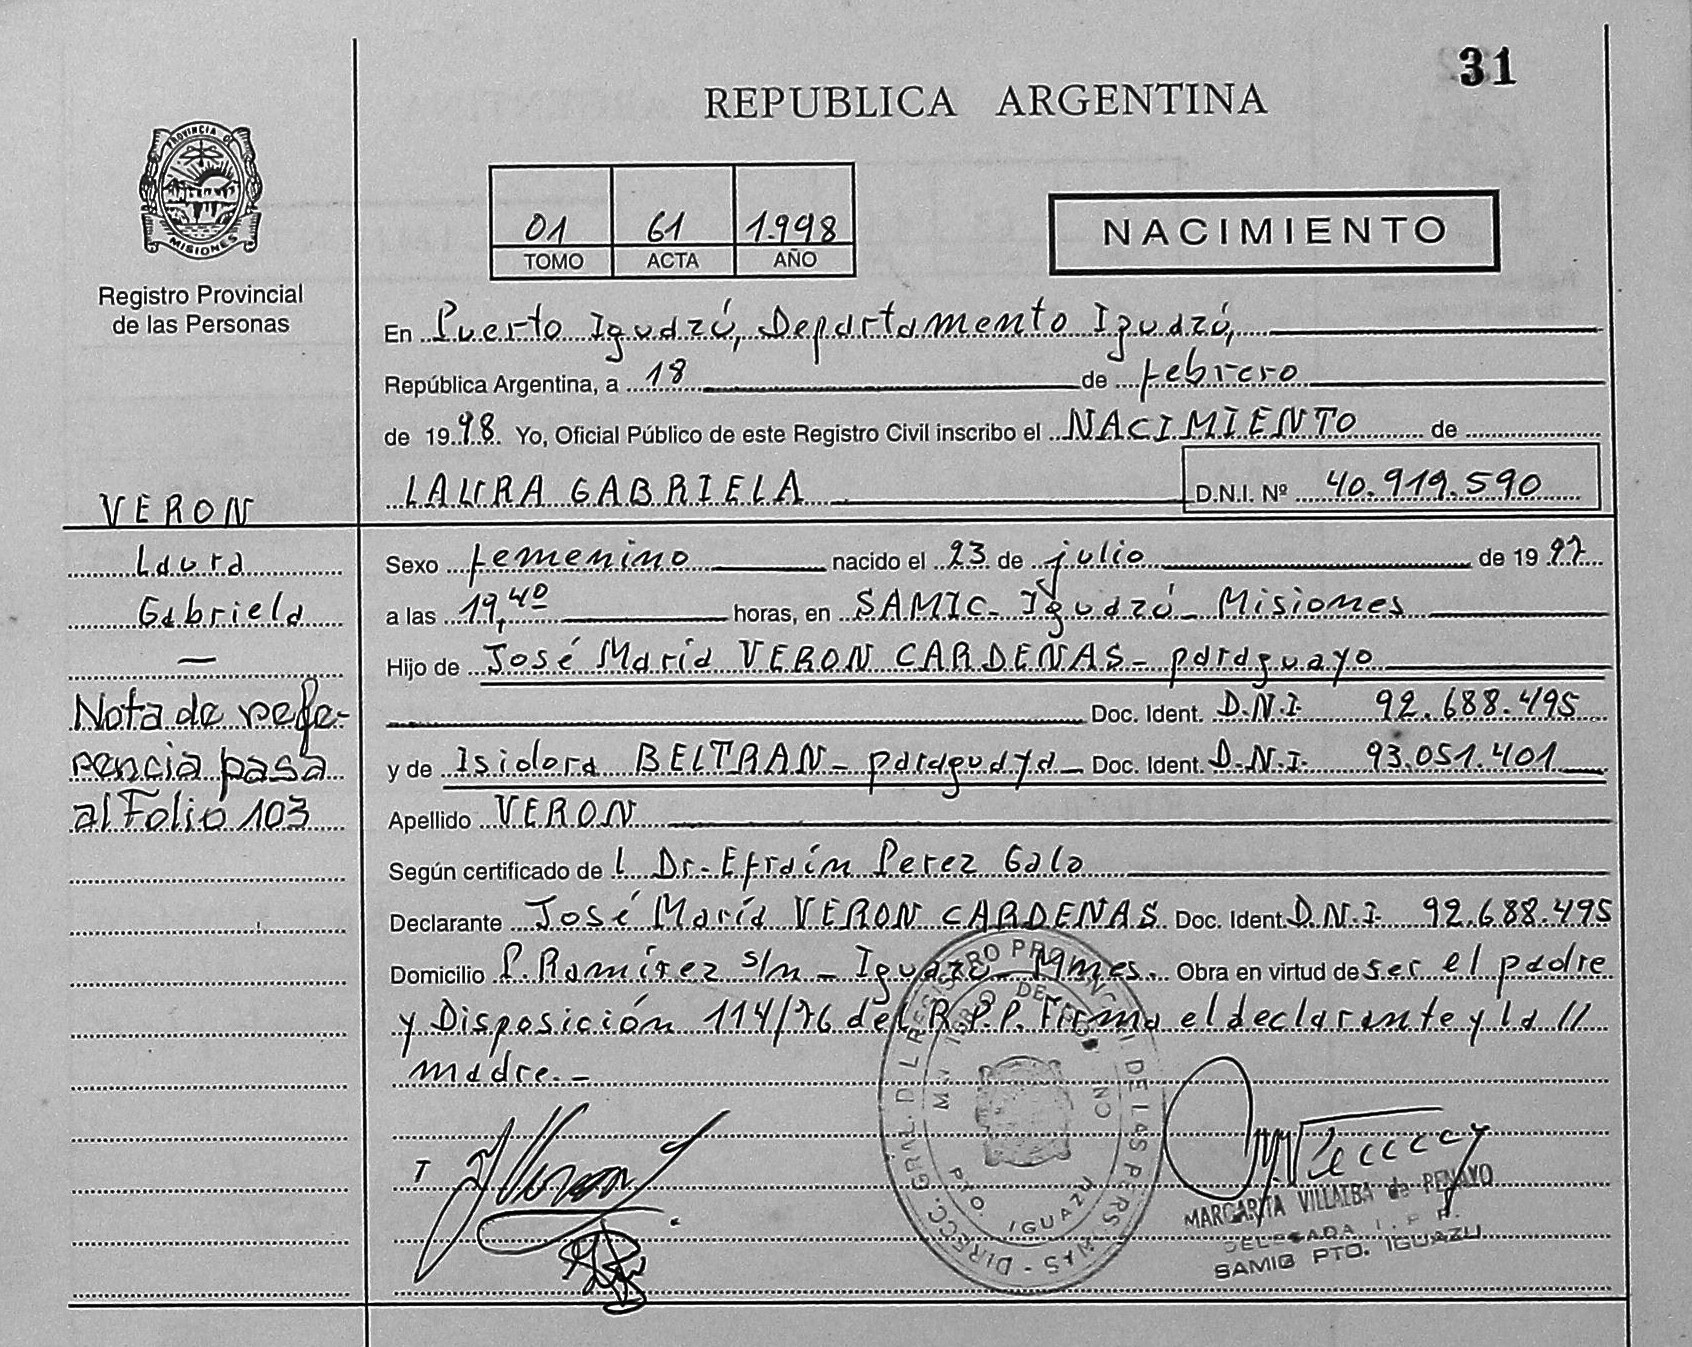 31
REPUBLICA ARGENTINA
PROVINCIA DE
MISIONES
Registro Provincial
de las Personas
01 61 1.998
TOMO ACTA AÑO
NACIMIENTO
En Puerto Iguazú, Departamento Iguazú,
República Argentina, a 18 de febrero
de 1998. Yo, Oficial Público de este Registro Civil inscribo el NACIMIENTO de
LAURA GABRIELA D.N.I. Nº 40.919.590
VERON
Laura
Gabriela
—
Nota de refe-
rencia pasa
al Folio 103
Sexo femenino nacido el 23 de julio de 1997
a las 19,40 horas, en SAMIC- Iguazú- Misiones
Hijo de José María VERON CARDENAS- paraguayo
Doc. Ident. D.N.I. 92.688.495
y de Isidora BELTRAN- paraguaya- Doc. Ident. D.N.I. 93.051.401
Apellido VERON
Según certificado de l Dr. Efraín Perez Galo
Declarante José María VERON CARDENAS Doc. Ident. D.N.I. 92.688.495
Domicilio P. Ramírez s/n - Iguazú- Mnes. Obra en virtud de ser el padre
y Disposición 114/76 del R.P.P. Firma el declarante y la //
madre.-
DIRECC. GRAL. DEL REGISTRO PROVINCIAL DE LAS PERSONAS
PTO. IGUAZU
MARGARITA VILLALBA de PENAYO
DELEGADA
SAMIC PTO. IGUAZU